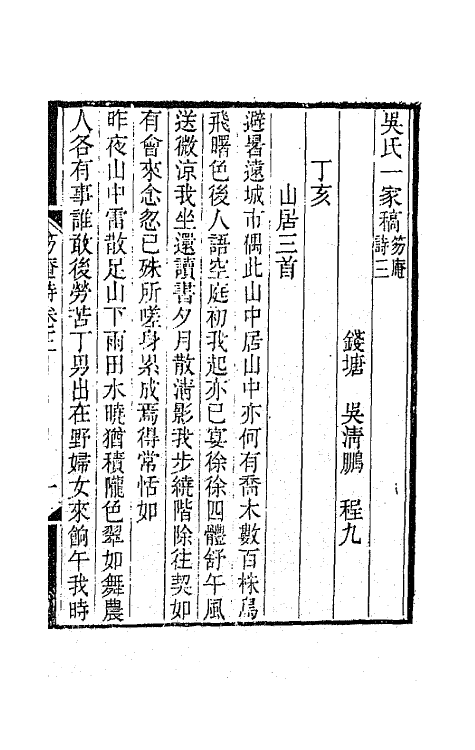 吳氏一家稿笏庵詩三
錢塘 吳清鵬 程九
丁亥
山居三首
避暑遠城市偶此山中居山中亦何有喬木數百株鳥
飛曙色後人語空庭初我起亦已宴徐徐四體舒午風
送微涼我坐還讀書夕月散清影我步繞階除往契如
有會來念忽已殊所嗟身累成焉得常恬如
昨夜山中雷散足山下雨田水曉猶積隴色翠如舞農
人各有事誰敢後勞苦丁男出在野婦女來餉午我時
笏庵詩卷三 一